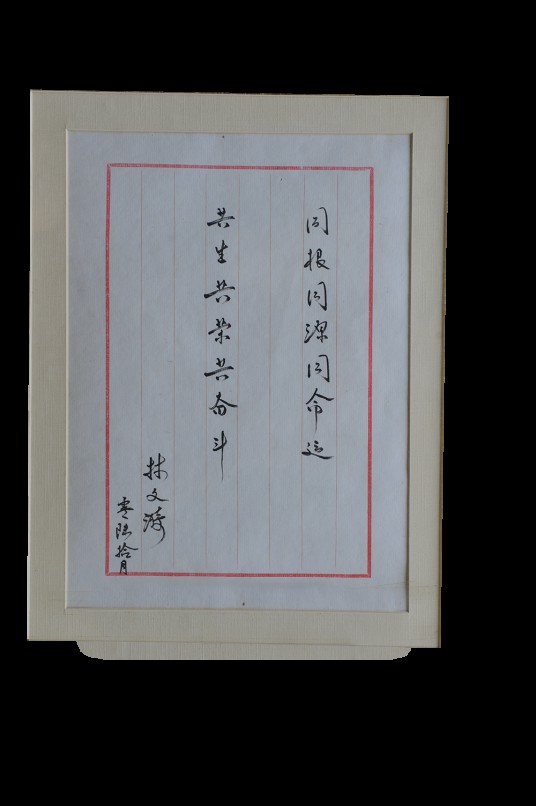 同根同源同命运
共生共荣共奋斗
林文漪
零陆拾月